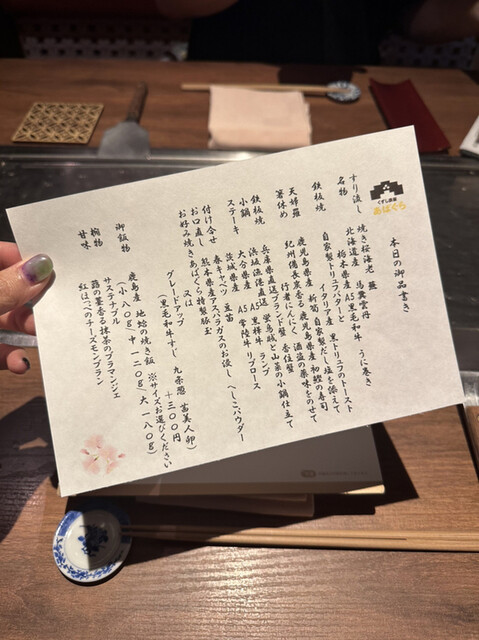 くずし鉄板
あばぐら
本日の御品書き
すり流し 焼き桜海老 羅馬糞雲丹
名物 北海道産 A5黒毛和牛 うに巻き
栃木県産 黒トリュフのトースト
自家製トリュフバターと イタリア産
鉄板焼 鹿児島県産 新筍 自家製だし塩を添えて
鹿児島県産 初鰹の寿司
天婦羅 紀州備長炭香る 酒盗の薬味をのせて
箸休め 行者にんにく 香住蟹
兵庫県直送ブランド蟹
鉄板焼 浜坂漁港直送 蛍烏賊と山菜の小鍋仕立て
小鍋 大分県産 A5黒樺牛 ランプ
ステーキ 茨城県産 A5常陸牛 リブロース
付け合せ 春キャベツ 豆苗 へしこパウダー
お口直し 熊本県産アスパラガスのお浸し
お好み焼き あばぐら特製豚玉
又は
グレードアップ +300円
(黒毛和牛すじ 九条葱 富美人卵)
御飯物 鹿児島産 地蛤の焼き飯 ※サイズお選びください
(小 80g)(中 120g)(大 180g)
椀物 サステナブル
甘味 蕗の薹香る抹茶のブラマンジェ
紅はるかのチーズモンブラン